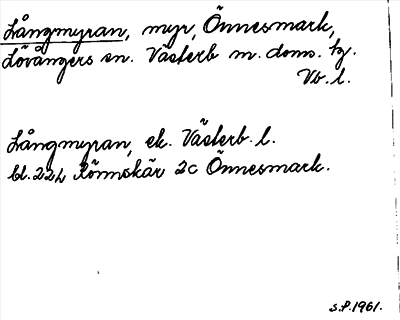 Långmyran, myr, Önnesmark,
Lövångers sn. Västerb m. doms. tg.
Vb. l.
Långmyran, ek. Västerb. l.
bl. 22L Rönnskär 2c Önnesmark.
S.P. 1961.